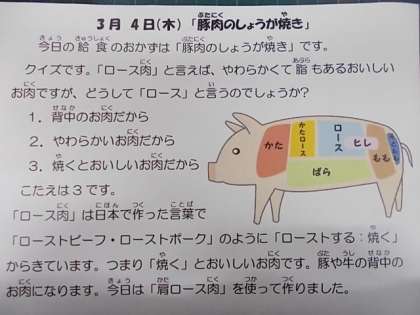 3月 4日(木)「豚肉のしょうが焼き」
今日の給食のおかずは「豚肉のしょうが焼き」です。
クイズです。「ロース肉」と言えば、やわらかくて脂もあるおいしい
お肉ですが、どうして「ロース」と言うのでしょうか?
1. 背中のお肉だから
2. やわらかいお肉だから
3. 焼くとおいしいお肉だから
こたえは3です。
「ロース肉」は日本で作った言葉で
「ローストビーフ・ローストポーク」のように「ローストする:焼く」
からきています。つまり「焼く」とおいしいお肉です。豚や牛の背中の
お肉になります。今日は「肩ロース肉」を使って作りました。
かた
かたロース
ロース
ヒレ
ばら
もも